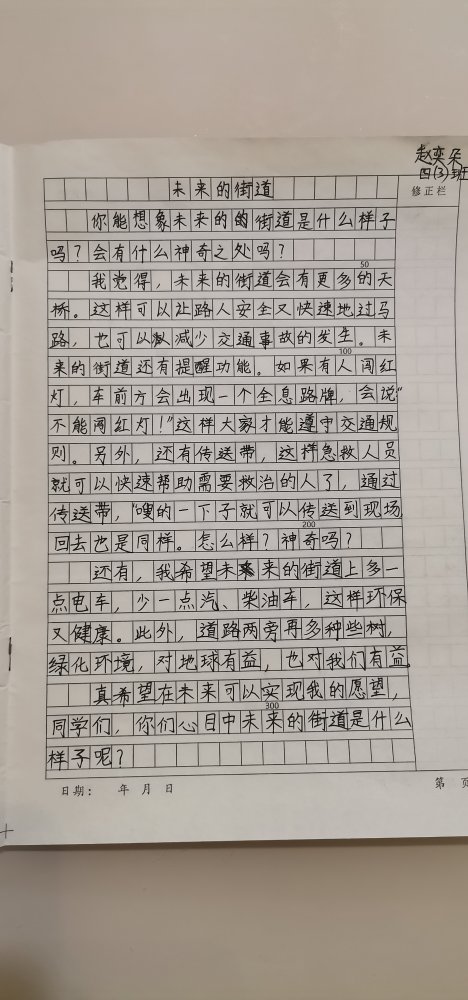 赵奕朵
四(3)班
修正栏
未来的街道
你能想象未来的的街道是什么样子
吗？会有什么神奇之处吗？
50
我觉得，未来的街道会有更多的天
桥。这样可以让路人安全又快速地过马
路，也可以减少交通事故的发生。未
来的街道还有提醒功能。如果有人闯红
100
灯，车前方会出现一个全息路牌，会说“
不能闯红灯！”这样大家才能遵守交通规
则。另外，还有传送带，这样急救人员
就可以快速帮助需要救治的人了，通过
传送带，“嗖的一下子就可以传送到现场，
200
回去也是同样。怎么样？神奇吗？
还有，我希望未来的街道上多一
点电车，少一点汽、柴油车，这样环保
又健康。此外，道路两旁再多种些树，
绿化环境，对地球有益，也对我们有益。
真希望在未来可以实现我的愿望，
300
同学们，你们心目中未来的街道是什么
样子呢？
日期： 年 月 日
第 页